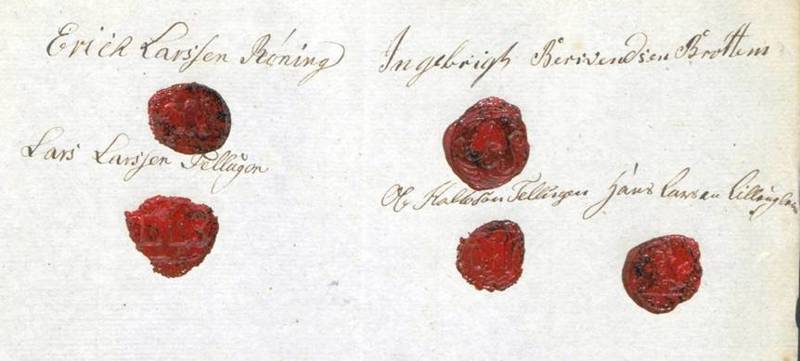 Erick Larssen Röning
Ingebrigh Berisendsen Brottem
Lars Larssen Tellugon
Ole Halvoson Tellugen
Hans Larsen